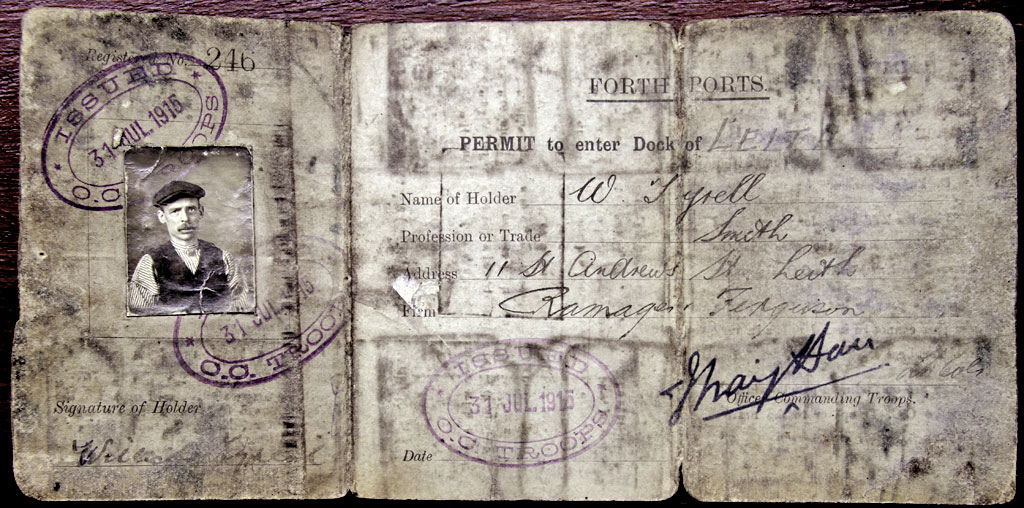 Registered No. 246
ISSUED
31 JUL 1916
O.C. TROOPS
ISSUED
31 JUL 1916
O.C. TROOPS
Signature of Holder
William Tyrell
FORTH PORTS.
PERMIT to enter Dock of LEITH
Name of Holder W. Tyrell
Profession or Trade Smith
Address 11 St Andrews St. Leith
Firm Ramage & Ferguson
Officer Commanding Troops.
ISSUED
31 JUL 1916
O.C. TROOPS
Date